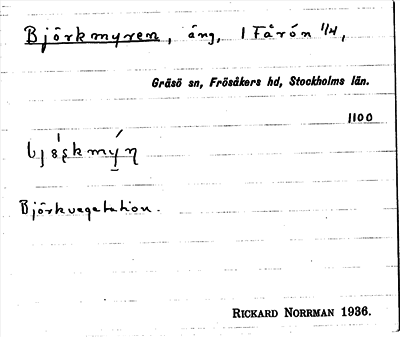 Björkmyren, äng, 1 Fårön 1/4,
Gräsö sn, Frösåkers hd, Stockholms län.
1100
Björkvegetation.
RICKARD NORRMAN 1936.